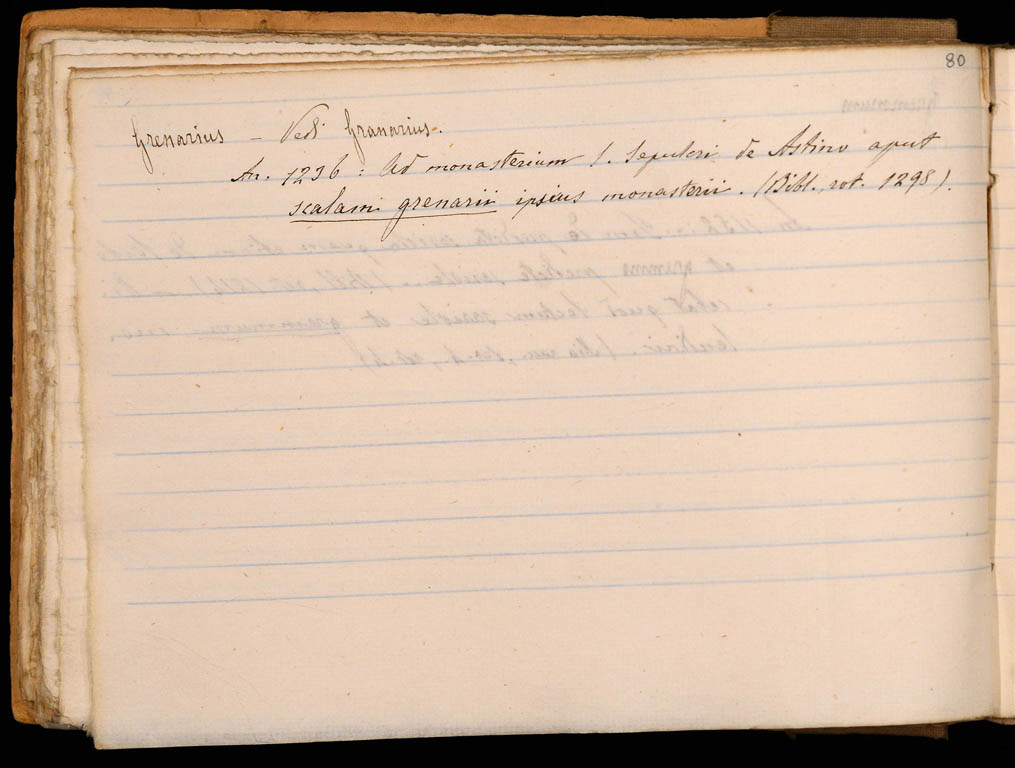 80
Grenarius – Vedi Granarius.
An. 1236: Ad monasterium S. Sepulcri de Astino aput
scalam grenarii ipsius monasterii. (Bibl., rot. 1298).